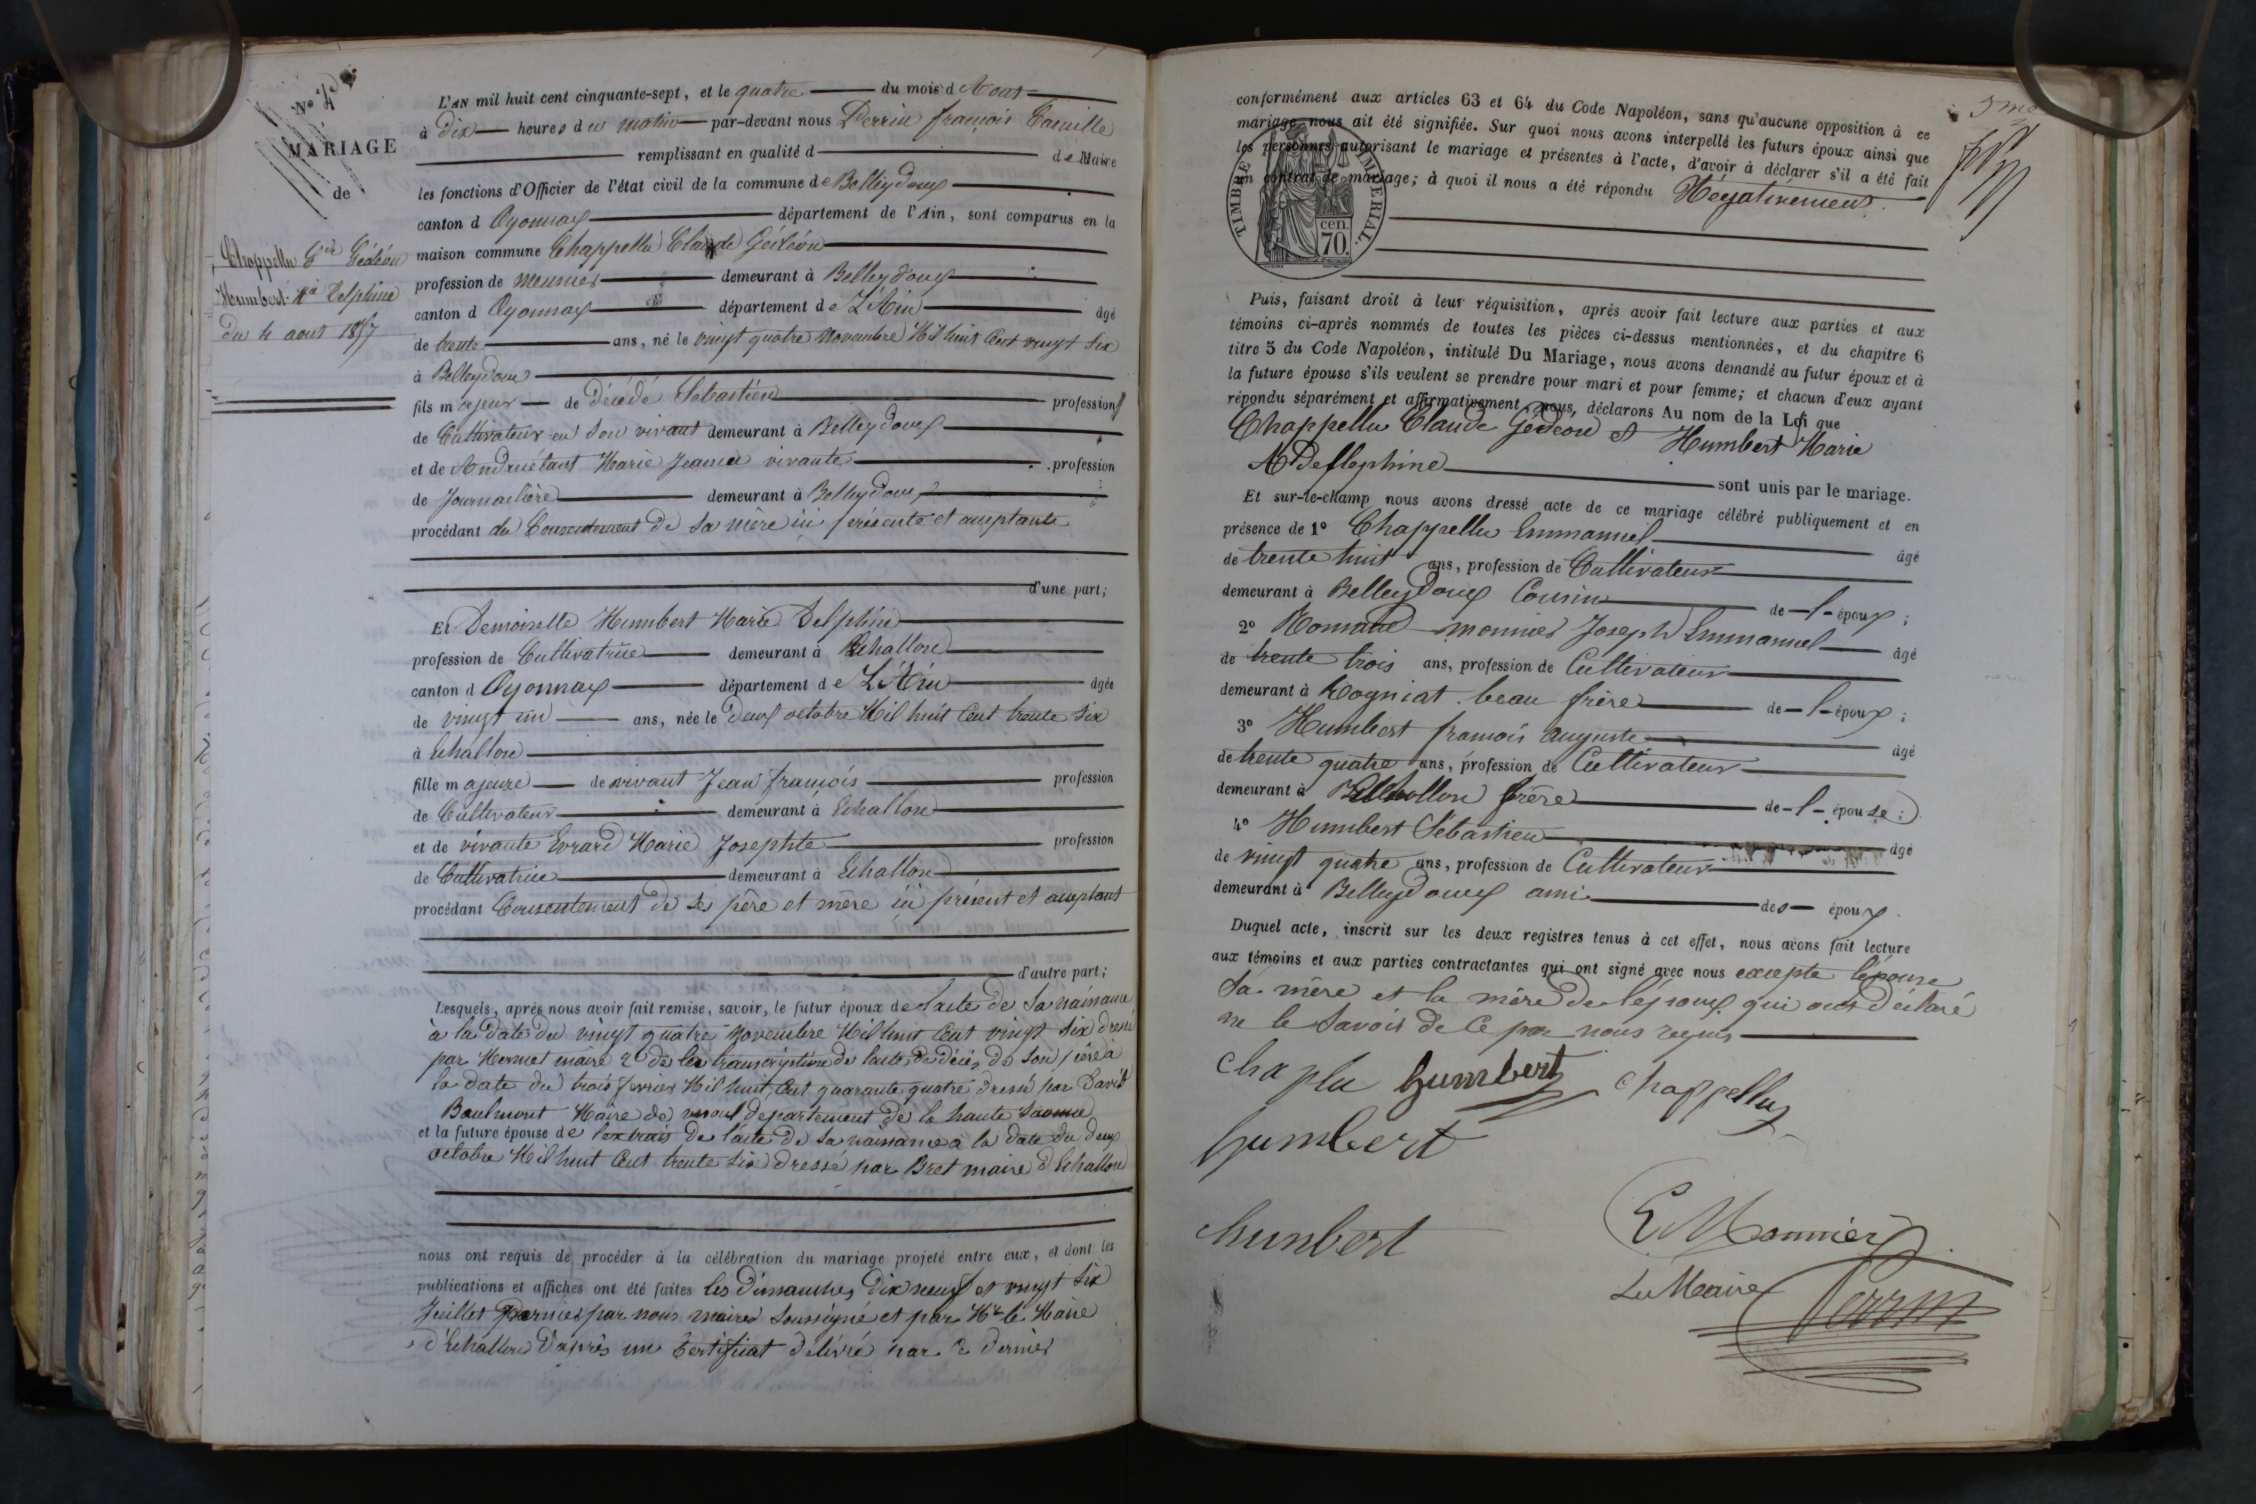 N° 4
MARIAGE
de
Chappellu Cde Gédéon
Humbert Mie Delphine
du 4 aout 1857
L'AN mil huit cent cinquante-sept, et le quatre du mois d'Aout
à Dix heures du matin par-devant nous Perrin françois Camille
remplissant en qualité d de Maire
les fonctions d'Officier de l'état civil de la commune de Belleydoux
canton d'Oyonnax département de l'Ain, sont comparus en la
maison commune Chappellu Claude Gédéon
profession de meunier demeurant à Belleydoux
canton d'Oyonnax département de L'Ain âgé
de trente ans, né le vingt quatre Novembre Mil huit Cent vingt Six
à Belleydoux
fils majeur de Décédé Sébastien profession
de Cultivateur en Son vivant demeurant à Belleydoux
et de Andruétant Marie Jeanne vivante profession
de Journalière demeurant à Belleydoux
procédant du Consentement de Sa mère ici présente et acceptante
d'une part;
Et Demoiselle Humbert Marie Delphine
profession de Cultivatrice demeurant à Echallon
canton d'Oyonnax département de L'Ain âgée
de vingt un ans, née le Deux octobre Mil huit Cent trente Six
à Echallon
fille majeure de vivant Jean françois profession
de Cultivateur demeurant à Echallon
et de vivante Evrard Marie Josephte profession
de Cultivatrice demeurant à Echallon
procédant Consentement de Ses père et mère ici présent et acceptant
d'autre part;
Lesquels, après nous avoir fait remise, savoir, le futur époux de l'acte de Sa naissance
à la Date du vingt quatre Novembre Mil huit Cent vingt Six dressé
par Mermet maire 2° de la transcription de l'acte de décès de Son père à
la date du trois fevrier Mil huit Cent quarante quatre dressé par David
Maire de vesoul département de la haute Saonne
et la future épouse de l'extrait de l'acte de Sa naissance à la Date du Deux
octobre Mil huit Cent trente Six dressé par Bret maire d'Echallon
nous ont requis de procéder à la célébration du mariage projeté entre eux, et dont les
publications et affiches ont été faites les Dimanches Dix neuf et vingt Six
Juillet Dernier par nous maire Soussigné et par Mr le Maire
d'Echallon D'après un Certificat Délivré par ce dernier
conformément aux articles 63 et 64 du Code Napoléon, sans qu'aucune opposition à ce
mariage nous ait été signifiée. Sur quoi nous avons interpellé les futurs époux ainsi que
les personnes autorisant le mariage et présentes à l'acte, d'avoir à déclarer s'il a été fait
un contrat de mariage; à quoi il nous a été répondu Négativement.
TIMBRE IMPERIAL.
70 cen.
Puis, faisant droit à leur réquisition, après avoir fait lecture aux parties et aux
témoins ci-après nommés de toutes les pièces ci-dessus mentionnées, et du chapitre 6
titre 5 du Code Napoléon, intitulé Du Mariage, nous avons demandé au futur époux et à
la future épouse s'ils veulent se prendre pour mari et pour femme; et chacun d'eux ayant
répondu séparément et affirmativement, nous, déclarons Au nom de la Loi que
Chappellu Claude Gédéon et Humbert Marie
Deflephine sont unis par le mariage.
Et sur-le-champ nous avons dressé acte de ce mariage célébré publiquement et en
présence de 1° Chappellu Emmanuel âgé
de trente huit ans, profession de Cultivateur
demeurant à Belleydoux Cousin de l'époux;
2° Monnier Joseph Emmanuel âgé
de trente trois ans, profession de Cultivateur
demeurant à Rogniat beau frère de l'époux;
3° Humbert françois auguste âgé
de trente quatre ans, profession de Cultivateur
demeurant à Echallon frère de l'épouse;
4° Humbert Sébastien âgé
de vingt quatre ans, profession de Cultivateur
demeurant à Belleydoux ami des époux.
Duquel acte, inscrit sur les deux registres tenus à cet effet, nous avons fait lecture
aux témoins et aux parties contractantes qui ont signé avec nous excepté l'épouse
Sa mère et la mère de l'époux qui ont Déclaré
ne le Savoir de Ce par nous requis
Chaplu humbert Chappellu
humbert
humbert
E Monnier
Le Maire
Perrin